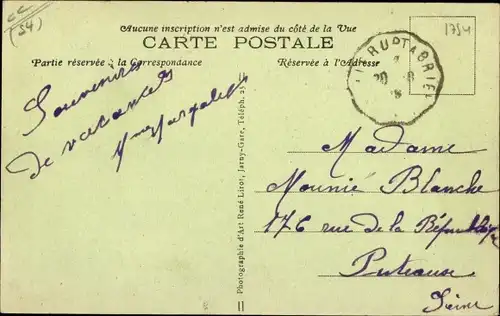 CC
(54)
1754
Aucune inscription n'est admise du côté de la Vue
CARTE POSTALE
Partie réservée à la Correspondance
Réservée à l'Adresse
RUPT A BRIEY
20 - 8
Souvenirs
de vacances
Photographie d'Art René Lirot, Jarny-Gare, Téléph. 25
Madame
Mounié Blanche
176 rue de la République
Puteaux
Seine
11